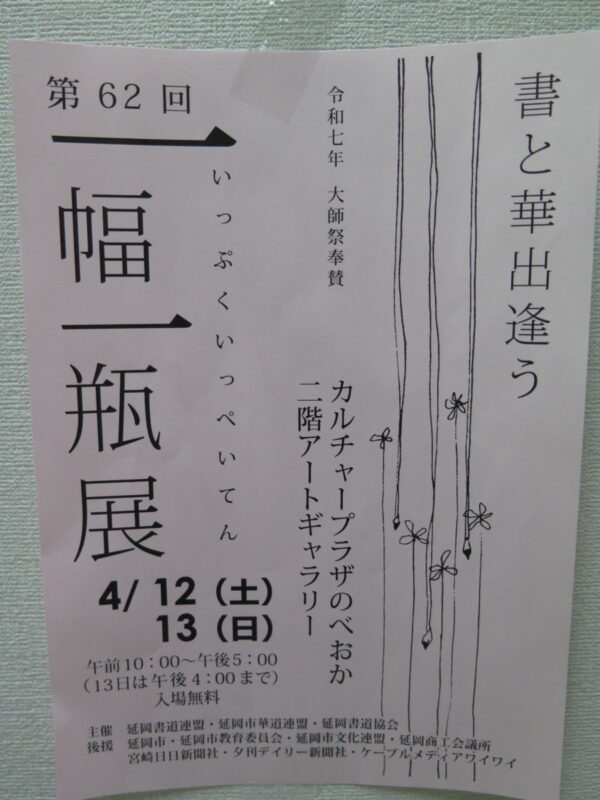 書と華出逢う
令和七年 大師祭奉賛
第62回
一幅一瓶展
いっぷくいっぺいてん
カルチャープラザのべおか
二階アートギャラリー
4/12（土）
13（日）
午前10：00～午後5：00
（13日は午後4：00まで）
入場無料
主催 延岡書道連盟・延岡市華道連盟・延岡書道協会
後援 延岡市・延岡市教育委員会・延岡市文化連盟・延岡商工会議所
宮崎日日新聞社・夕刊デイリー新聞社・ケーブルメディアワイワイ